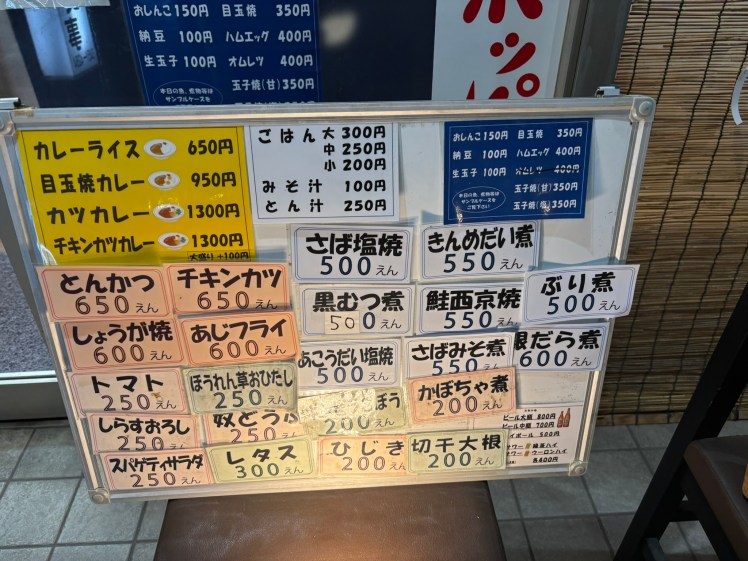 おしんこ 150円 目玉焼 350円
納豆 100円 ハムエッグ 400円
生玉子 100円 オムレツ 400円
玉子焼(甘) 350円
本日の魚、煮物等は
サンプルケースを
ホッピ
カレーライス 650円
目玉焼カレー 950円
カツカレー 1300円
チキンカツカレー 1300円
大盛り +100円
ごはん 大 300円
中 250円
小 200円
みそ汁 100円
とん汁 250円
おしんこ 150円 目玉焼 350円
納豆 100円 ハムエッグ 400円
生玉子 100円 オムレツ 400円
玉子焼(甘) 350円
玉子焼(塩) 350円
本日の魚、煮物等は
サンプルケースを
ご覧下さい
さば塩焼 500えん
きんめだい煮 550えん
とんかつ 650えん
チキンカツ 650えん
黒むつ煮 500えん
鮭西京焼 550えん
ぶり煮 500えん
しょうが焼 600えん
あじフライ 600えん
あこうだい塩焼 500えん
さばみそ煮 550えん
銀だら煮 600えん
トマト 250えん
ほうれん草おひたし 250えん
かぼちゃ煮 200えん
しらすおろし 250えん
奴どうふ 250えん
ぼう
スパゲティサラダ 250えん
レタス 300えん
ひじき 200えん
切干大根 200えん
ビール大瓶 800円
ビール中瓶 700円
イボール 500円
ワー 緑茶ハイ
ワー ウーロンハイ
各400円